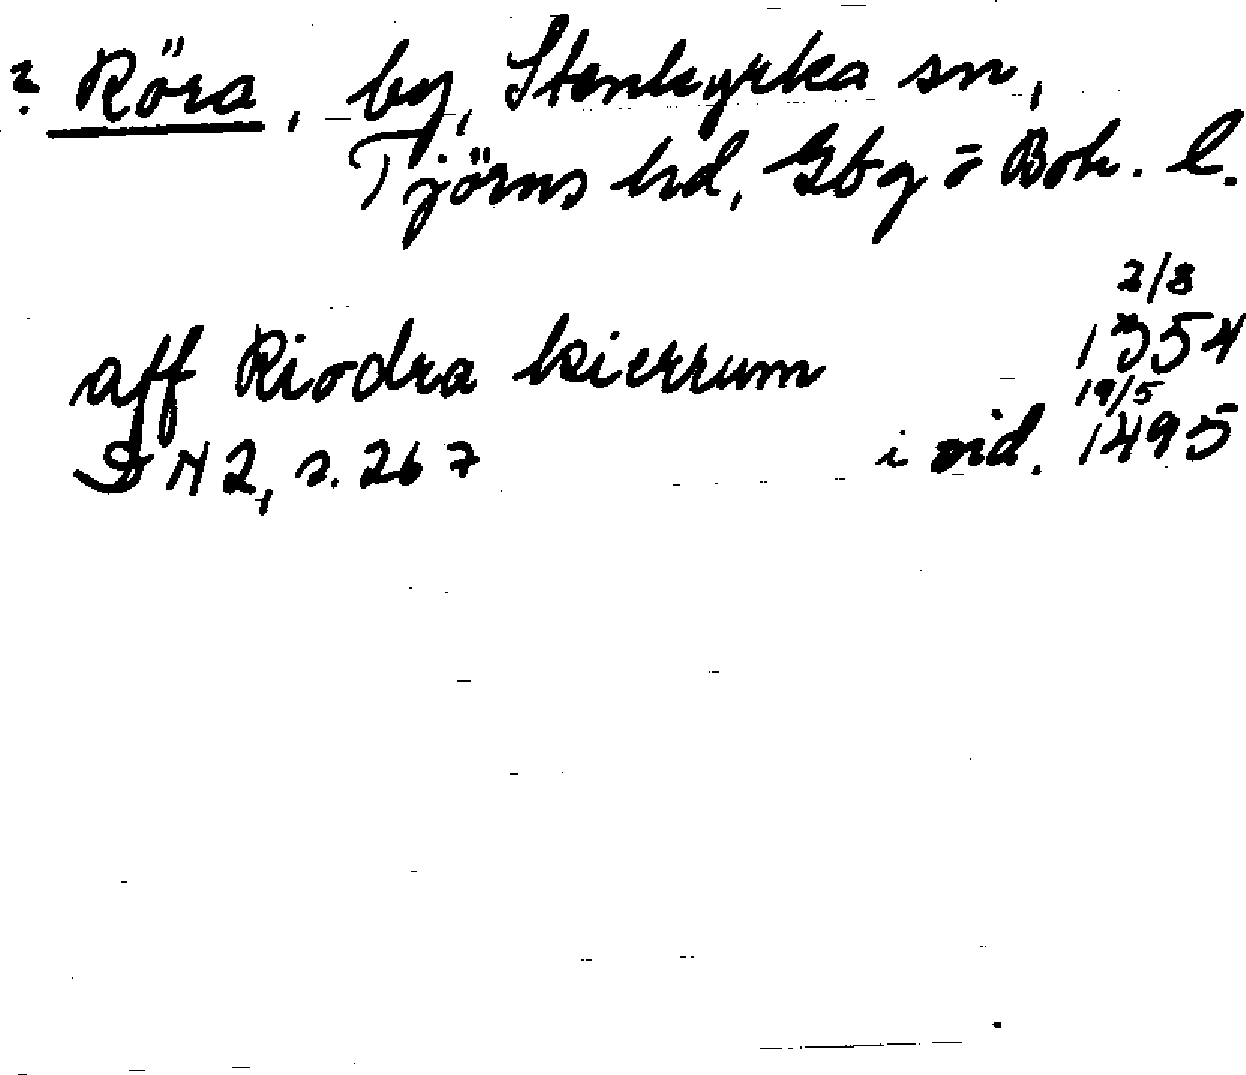 ? Röra, by, Stenkyrka sn,
Tjörns hd, Gbg o Boh. l.
2/8
aff Riodra kierrum 1354
19/5
DN 2, s. 267 i vid. 1495